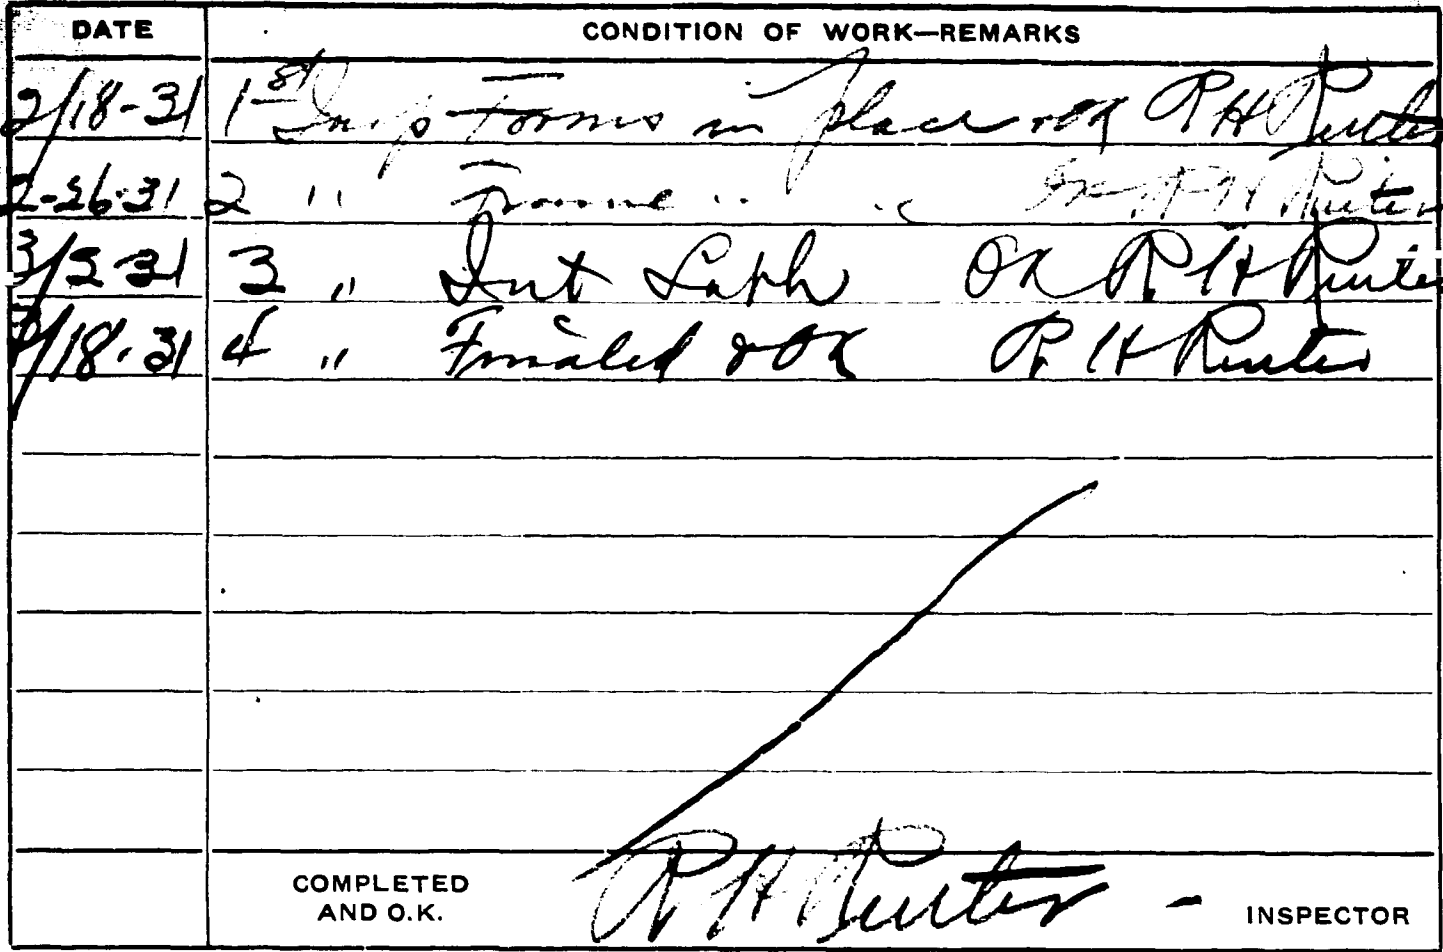 DATE CONDITION OF WORK—REMARKS
2/18-31 1st Insp Forms in place & OK R H Ruiter
2-26-31 2 " Frame " " OK R H Ruiter
3/5-31 3 " Int Lath OK R H Ruiter
/18-31 4 " Finaled & OK R H Ruiter
COMPLETED
AND O.K. R H Ruiter - INSPECTOR